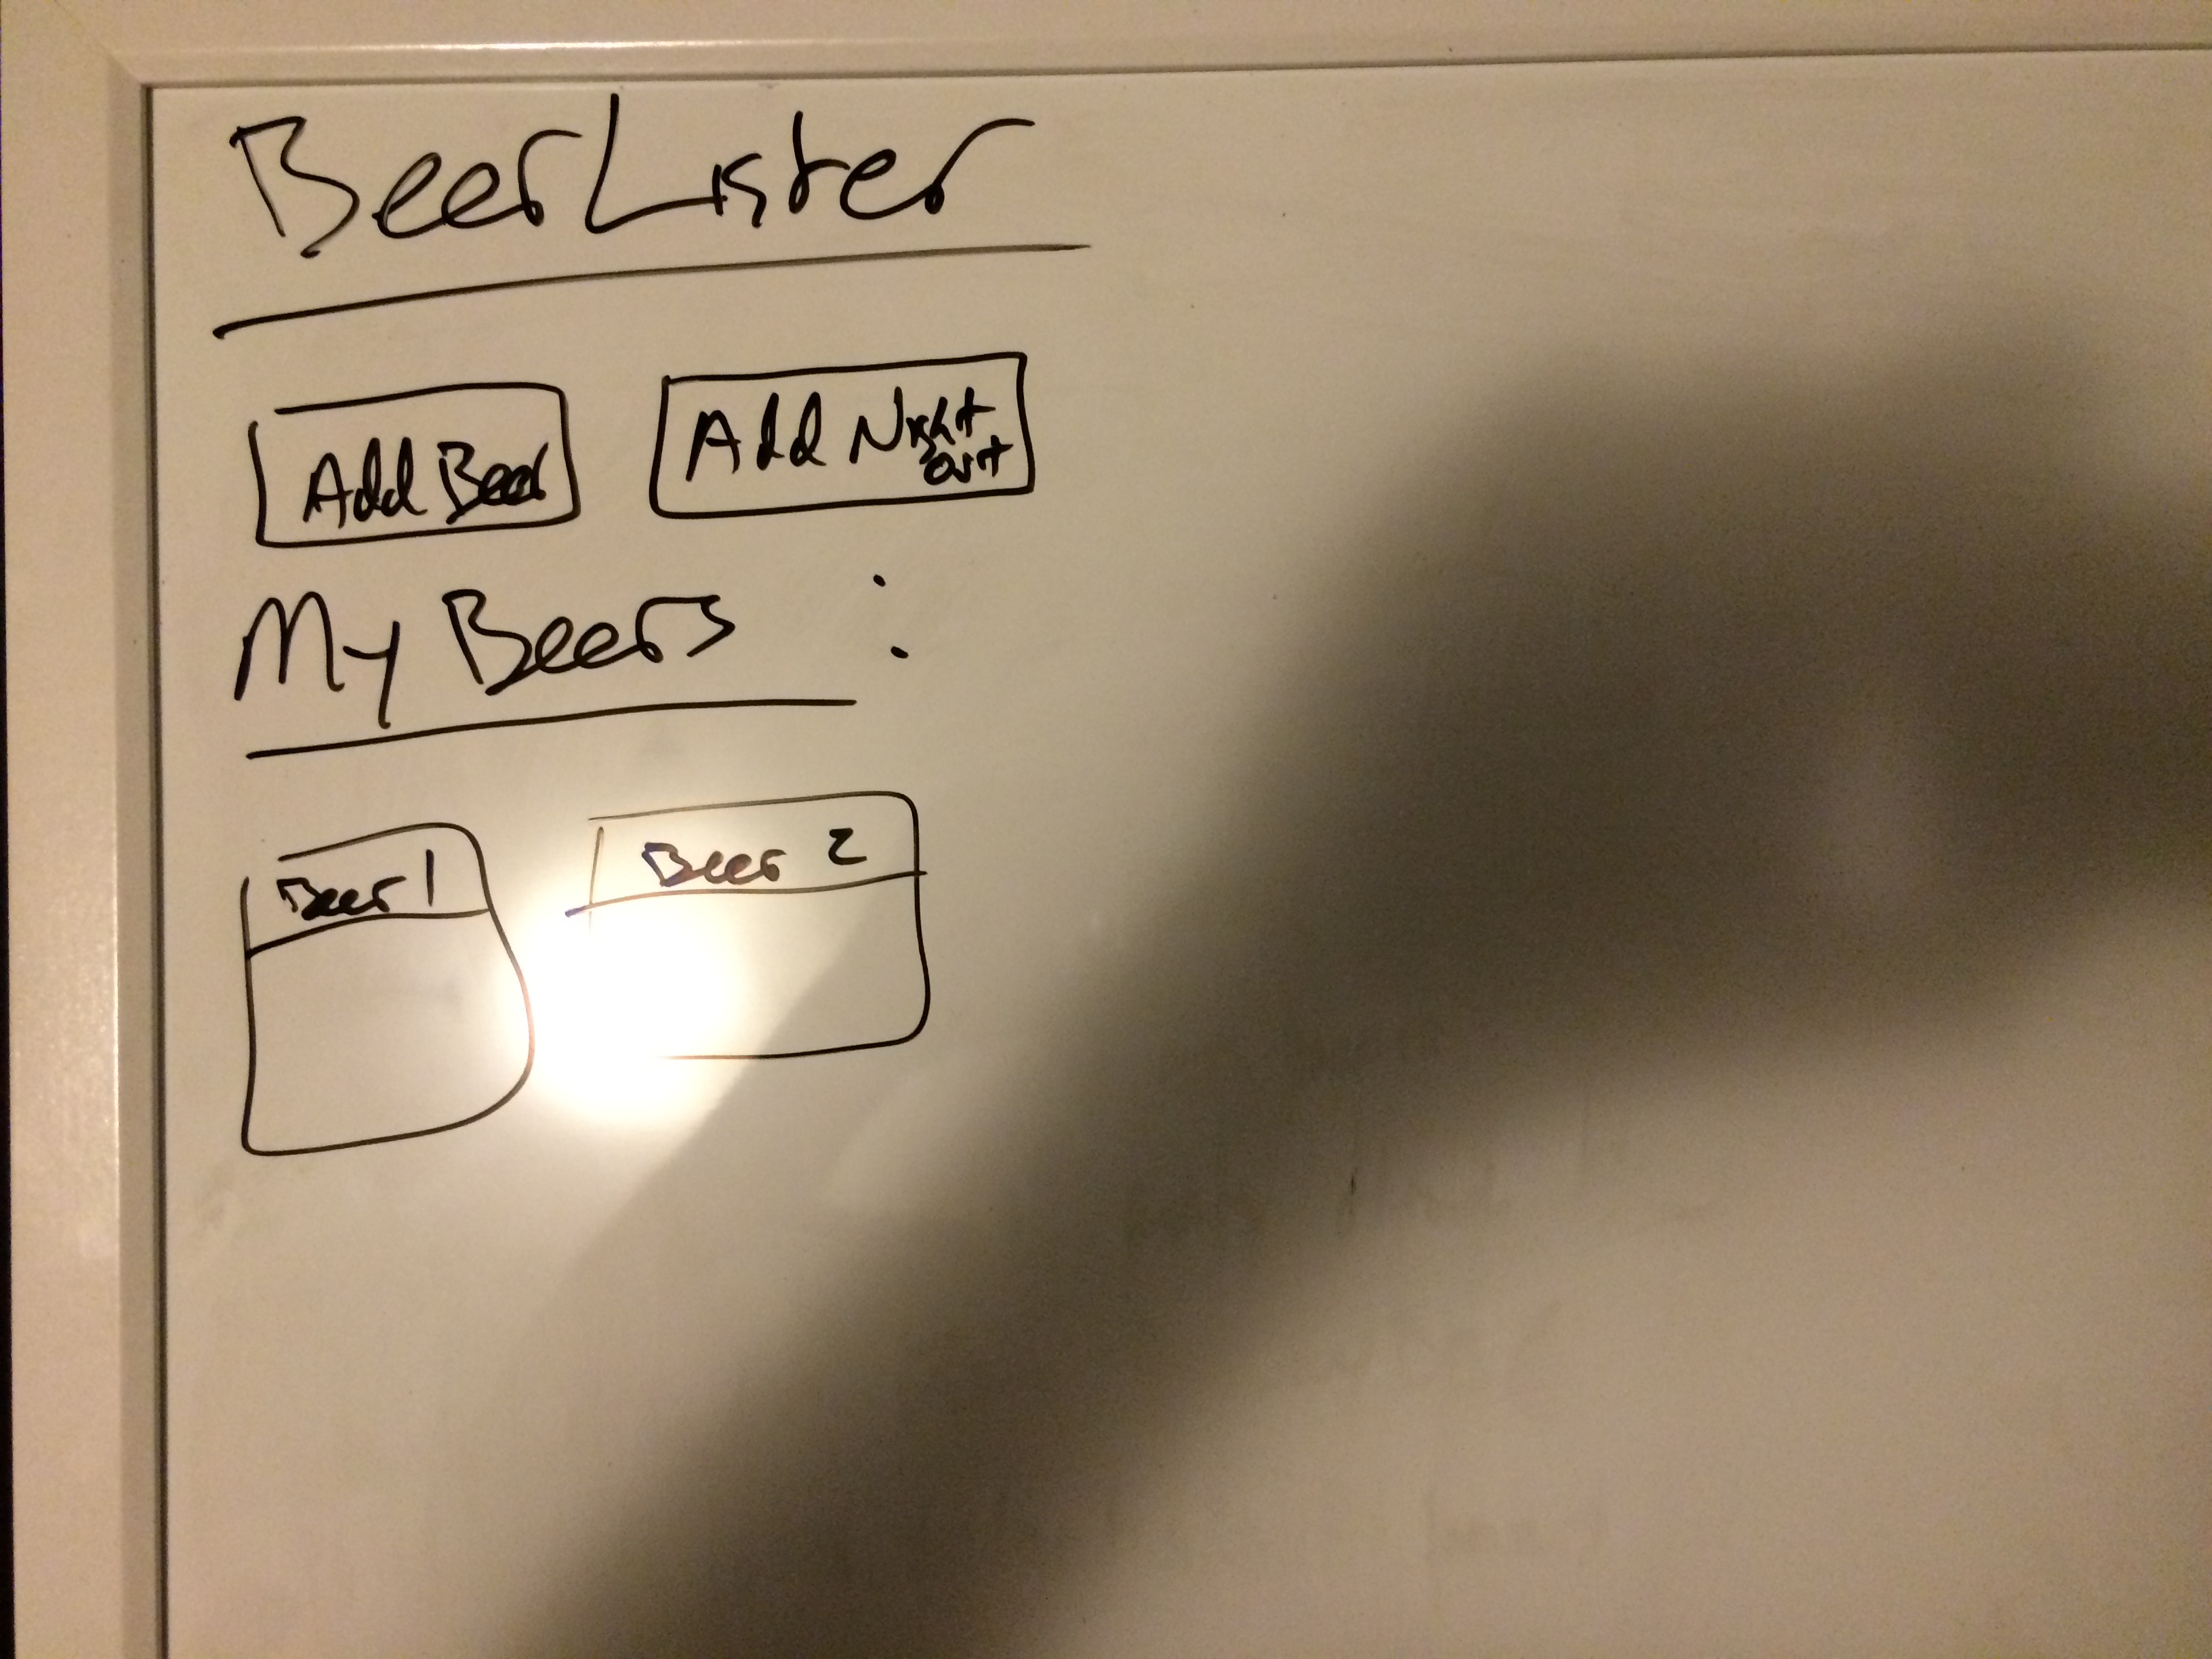 Beer Lister
Add Beer
Add Night out
My Beers :
Beer 1
Beer 2